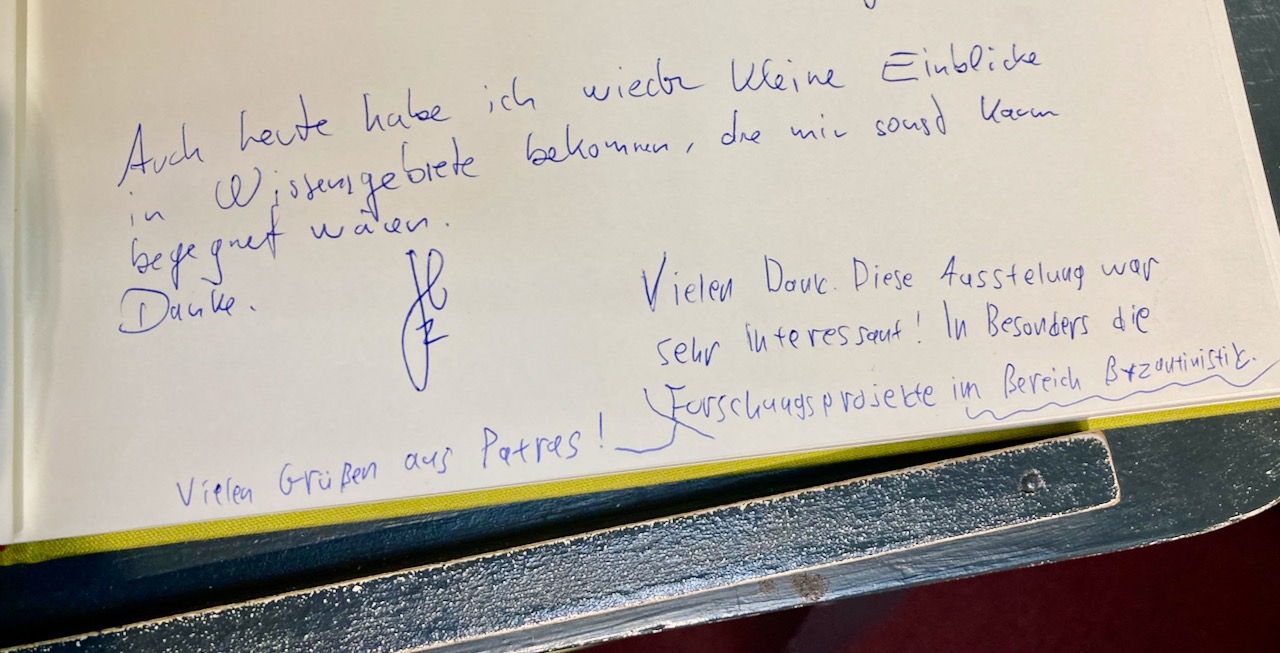 Auch heute habe ich wieder kleine Einblicke
in Wissensgebiete bekommen, die mir sonst kaum
begegnet wären.
Danke.
Vielen Dank. Diese Ausstelung war
sehr interessant! In Besonders die
Forschungsprojekte im Bereich Byzantinistik.
Vielen Grüßen aus Patras!